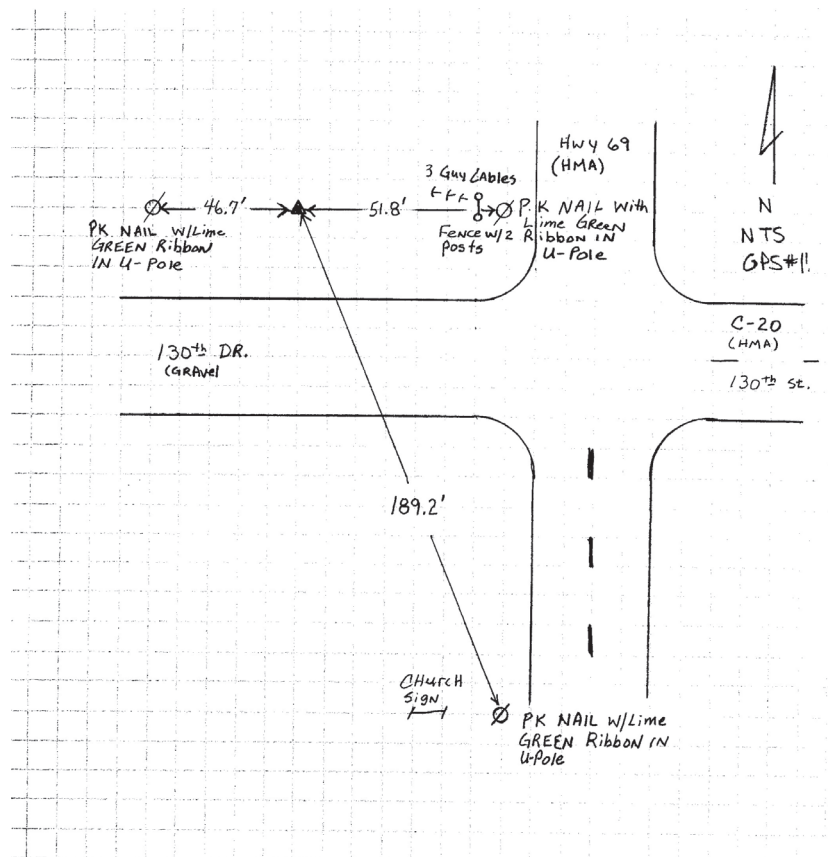 Hwy 69
(HMA)
3 Guy Cables
46.7'
51.8'
PK NAIL W/Lime
GREEN Ribbon
IN U-Pole
Fence w/2
Posts
P.K NAIL With
Lime Green
Ribbon IN
U-Pole
N
NTS
GPS#11
C-20
(HMA)
130th St.
130th DR.
(GRAvel
189.2'
CHurcH
Sign
PK NAIL W/Lime
GREEN Ribbon IN
U-Pole